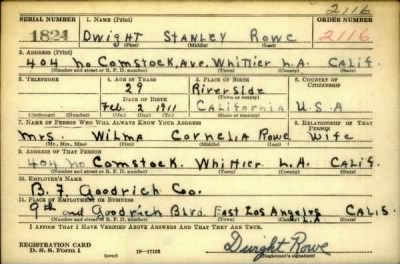 2116
SERIAL NUMBER 1. NAME (Print) ORDER NUMBER
1824 Dwight Stanley Rowe 2116
(First) (Middle) (Last)
2. ADDRESS (Print)
404 No Comstock, Ave. Whittier L.A. Calif.
(Number and street or R. F. D. number) (Town) (County) (State)
3. TELEPHONE 4. AGE IN YEARS 5. PLACE OF BIRTH 6. COUNTRY OF CITIZENSHIP
29 Riverside
DATE OF BIRTH (Town or county)
Feb. 2 1911 California U.S.A
(Exchange) (Number) (Mo.) (Day) (Yr.) (State or country)
7. NAME OF PERSON WHO WILL ALWAYS KNOW YOUR ADDRESS 8. RELATIONSHIP OF THAT PERSON
Mrs. Wilma Cornelia Rowe Wife
(Mr., Mrs., Miss) (First) (Middle) (Last)
9. ADDRESS OF THAT PERSON
404 No Comstock. Whittier L.A. Calif.
(Number and street or R. F. D. number) (Town) (County) (State)
10. EMPLOYER'S NAME
B. F. Goodrich Coo.
11. PLACE OF EMPLOYMENT OR BUSINESS
9th and Goodrich Blvd. East Los Angeles L.A. Calif.
(Number and street or R. F. D. number) (Town) (County) (State)
I AFFIRM THAT I HAVE VERIFIED ABOVE ANSWERS AND THAT THEY ARE TRUE.
REGISTRATION CARD
D. S. S. Form 1 (over) Dwight Rowe
(Registrant's signature)